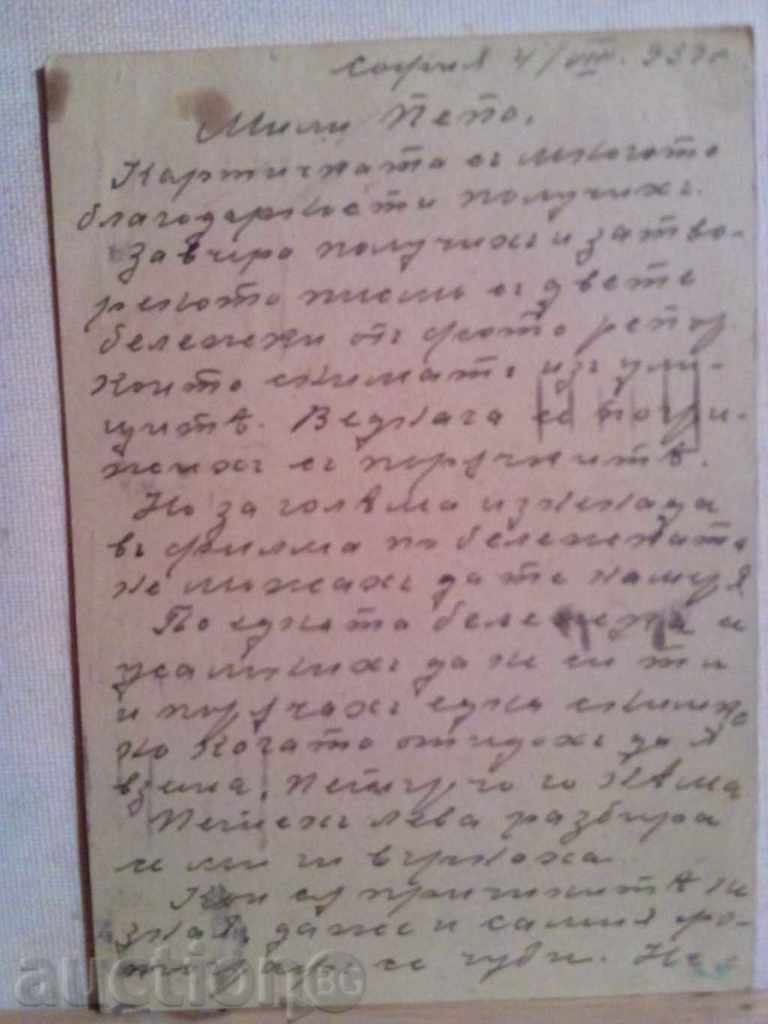 София 4/VIII. 937 г.
Мили Пепо,
Картичката съ многото
благодарности получихъ.
Завчера получихъ и затво-
реното писмо съ двете
бележки отъ фото репор.
които сниматъ изъ ули-
цитѣ. Веднага се погри-
жихъ съ поръчкитѣ.
Но за голѣма изненада
въ филма по бележката
не можахъ да те намеря
По едната бележка и
усъмнихъ да не си ти
и поръчахъ една снимка
но когато отидохъ да я
взема, Петърчо го нѣма
Петехъ лева разбира
се ми ги върнаха
Кои са причинитѣ не
зная, даже и самия фо-
тографъ се чуди. Не
auction BG